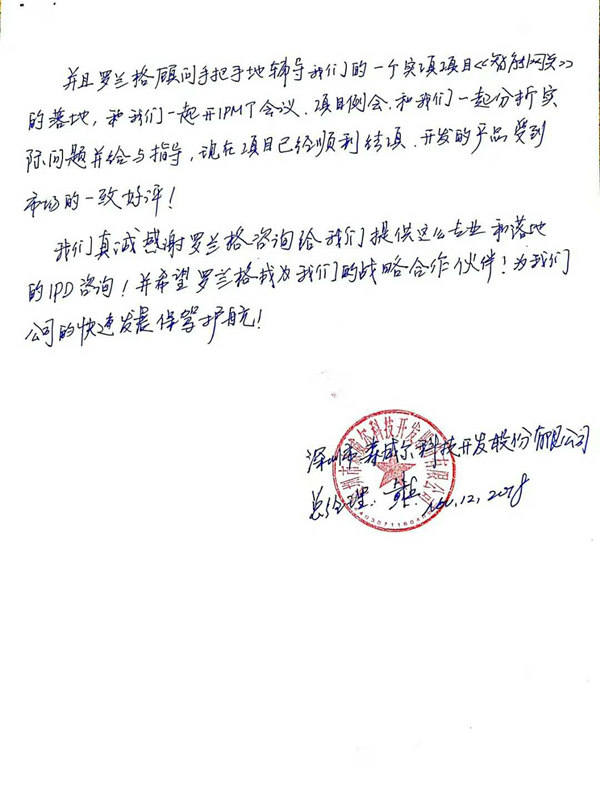 并且罗兰格顾问手把手地辅导我们的一个实项项目《智能网关》
的落地，和我们一起开IPMT会议、项目例会，和我们一起分析实
际问题并给与指导，现在项目已经顺利结项，开发的产品受到
市场的一致好评！
我们真诚感谢罗兰格咨询给我们提供这么专业和落地
的IPD咨询！并希望罗兰格成为我们的战略合作伙伴！为我们
公司的快速发展保驾护航！
深圳市 威尔科技开发股份有限公司
总经理: 12, 2018